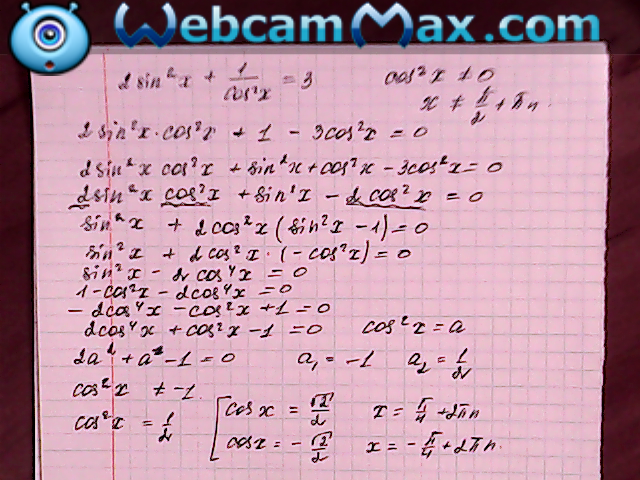 WebcamMax.com
2sin²x + 1/cos²x = 3 cos²x ≠ 0
x ≠ π/2 + πn
2sin²x·cos²x + 1 - 3cos²x = 0
2sin²x cos²x + sin²x + cos²x - 3cos²x = 0
2sin²x cos²x + sin²x - 2cos²x = 0
sin²x + 2cos²x(sin²x - 1) = 0
sin²x + 2cos²x·(-cos²x) = 0
sin²x - 2cos⁴x = 0
1 - cos²x - 2cos⁴x = 0
- 2cos⁴x - cos²x + 1 = 0
2cos⁴x + cos²x - 1 = 0 cos²x = a
2a² + a - 1 = 0 a₁ = -1 a₂ = 1/2
cos²x ≠ -1
cos²x = 1/2 [ cosx = √2/2 x = π/4 + 2πn
cosx = -√2/2 x = -π/4 + 2πn.